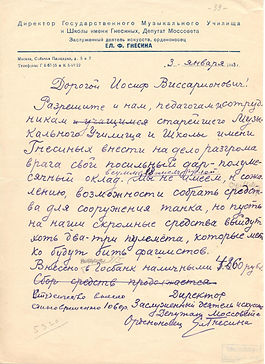 -39-
Директор Государственного Музыкального Училища
и Школы имени Гнесиных, Депутат Моссовета
Заслуженный деятель искусств, орденоносец
ЕЛ. Ф. ГНЕСИНА
Москва, Собачья Площадка, д. 5 и 7
3. января
Дорогой Иосиф Виссарионович!
Разрешите и нам, педагогам, сотруд-
никам и учащимся старейшего Музы-
кального Училища и Школы имени
Гнесиных внести на дело разгрома
врага свой посильный дар - полуме-
сячный оклад.
Мы не имеем, к сожа-
лению, возможности собрать средст-
ва для сооружения танка, но пусть
на наши скромные средства выйдут
хоть два-три пулемета, которые мет-
ко будут бить фашистов.
Внесено в Госбанк наличными 7.860 руб.
Сбор средств продолжается
Директор
Заслуженный деятель искусств
Депутат Моссовета
Орденоносец Гнесина